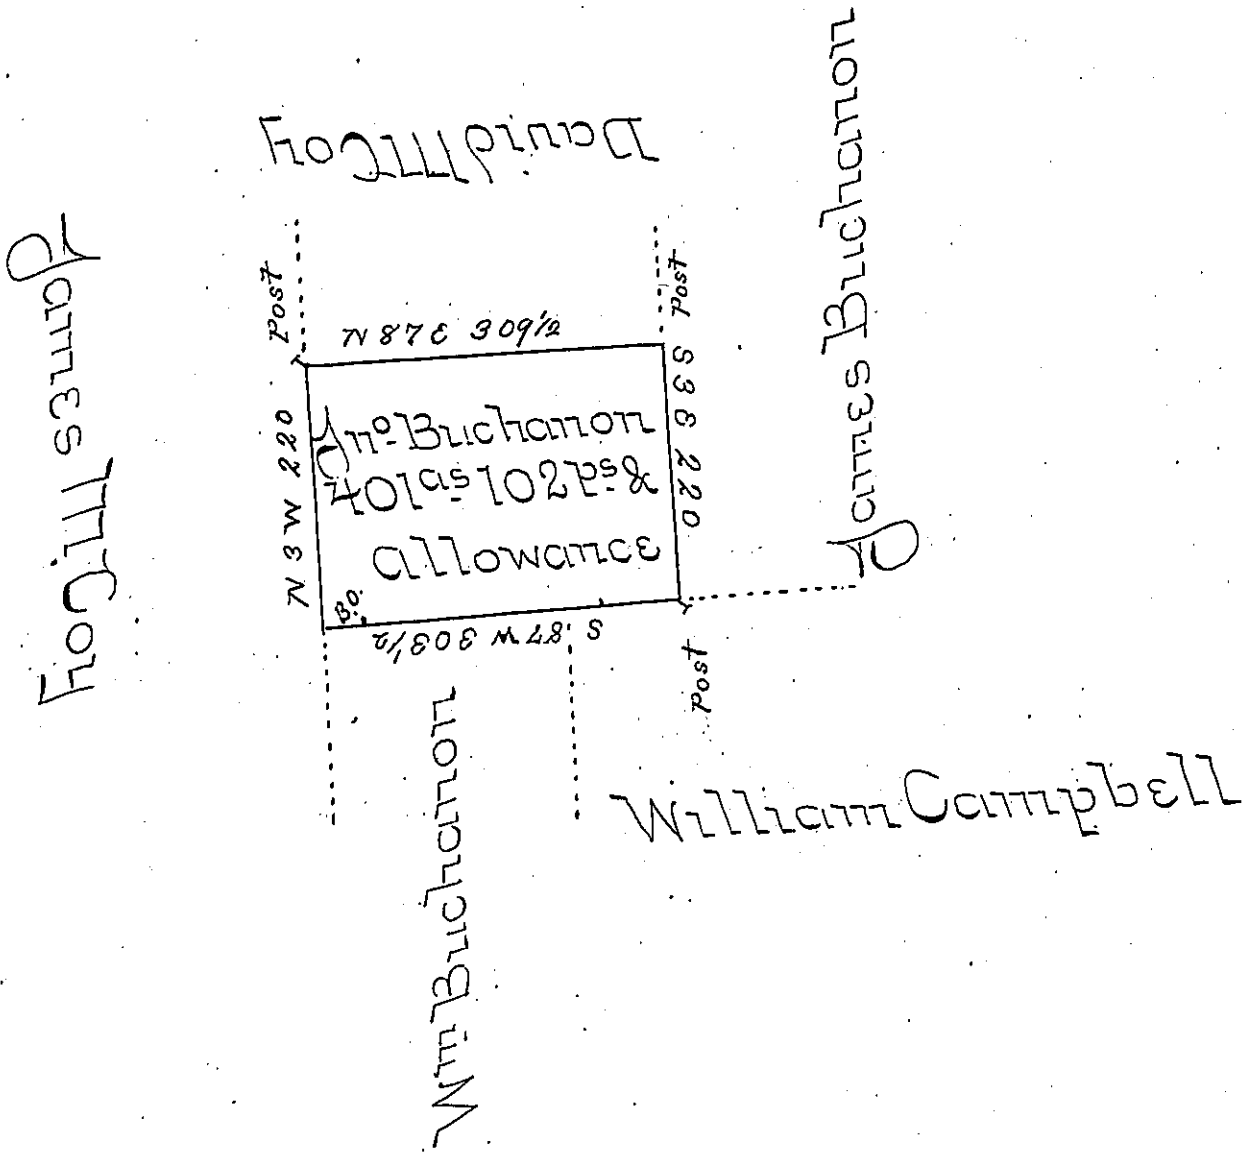 David McCoy
James McCoy
James Buchanon
Post
Post
N 87 E 309½
N 3 W 220
S 3 E 220
Jno. Buchanon
401as 102ps &
allowance
B.O.
S. 87 W 303½
Post
Wm. Buchanon
William Campbell